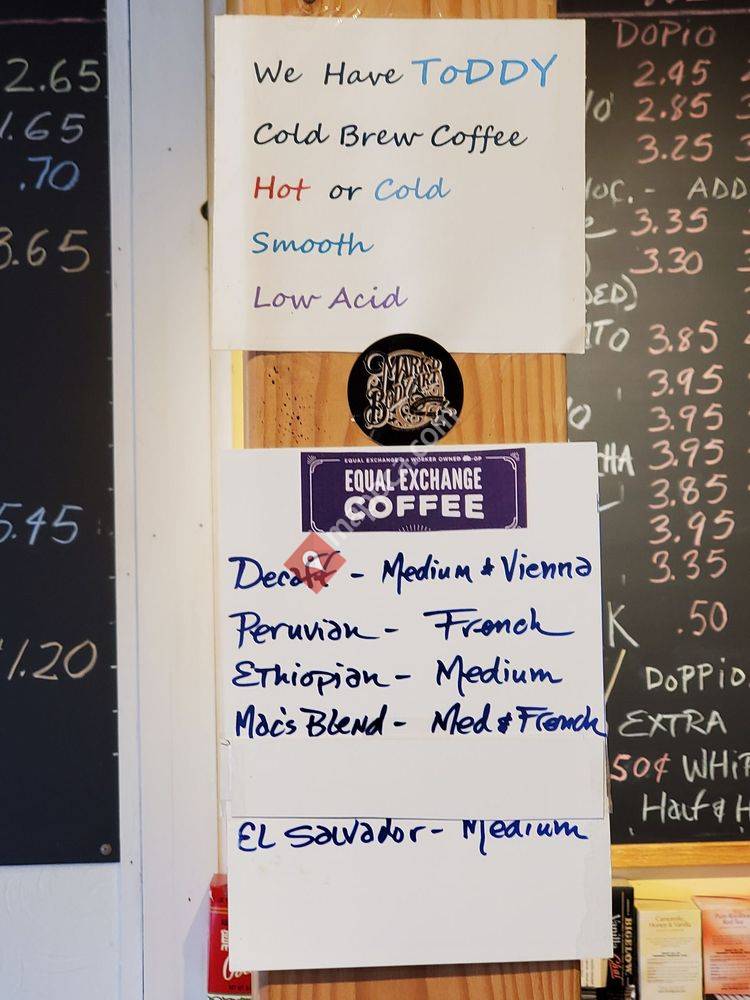 2.65
1.65
.70
3.65
5.45
1.20
We Have ToDDY
Cold Brew Coffee
Hot or Cold
Smooth
Low Acid
MARK'D
BODY ART
EQUAL EXCHANGE IS A WORKER OWNED CO-OP
EQUAL EXCHANGE
COFFEE
Decaf - Medium & Vienna
Peruvian - French
Ethiopian - Medium
Mac's Blend - Med & French
EL Salvador - Medium
DOPIO
2.45
2.85
3.25
ADD
3.35
3.30
3.85
3.95
3.95
3.95
3.85
3.95
3.35
.50
DOPPIO
EXTRA
50¢ WHIP
Half & H
BIGELOW
Vanilla Chai